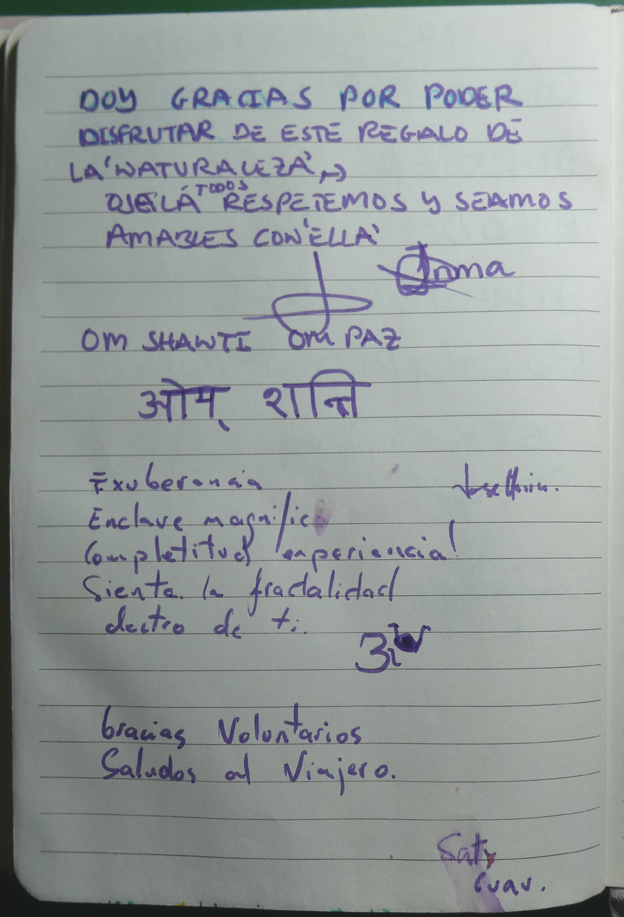 DOY GRACIAS POR PODER
DISFRUTAR DE ESTE REGALO DE
LA 'NATURALEZA',
OJALÁ TODOS RESPETEMOS Y SEAMOS
AMABLES CON 'ELLA'
OM SHANTI OM PAZ
ओम् शान्ति
Exuberancia
Enclave magnífico
Completitud experiencial
Sienta la fractalidad
dectro de ti.
Gracias Voluntarios
Saludos al Viajero.